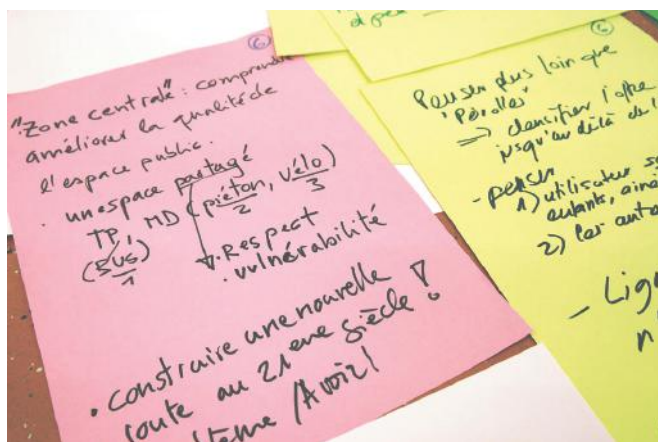 6
"Zone centrale": comprendre
améliorer la qualité de
l'espace public.
. un espace partagé
TP, MD (piéton, vélo)
2 3
(BUS)
1
. Respect
. vulnérabilité
. construire une nouvelle
route au 21 eme siècle!
/Avoir!
6
Penser plus loin que
"Pérolles"
=> densifier l'offre
jusqu'au délà de
- penser
1) utilisateur
enfants,
2)
- Lig